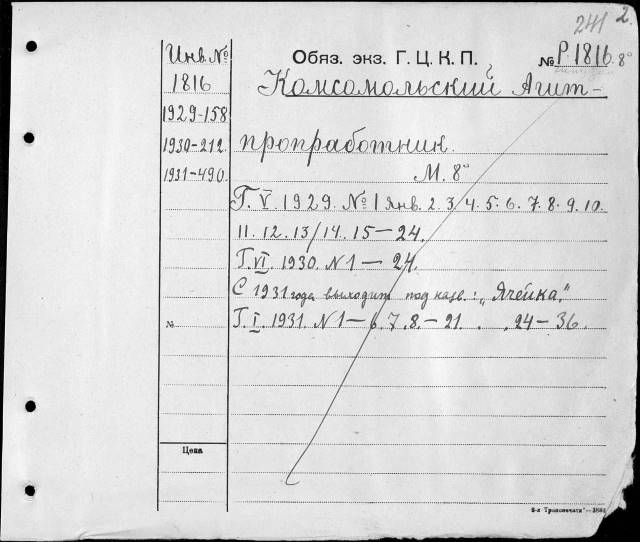 241 2.
Инв. №
1816
1929-158
1930-212.
1931-490.
№
Цена
Обяз. экз. Г. Ц. К. П.
№ Р.1816. 8°
Комсомольский Агит-
пропработник.
М. 8°
Г. V. 1929. № 1 янв. 2. 3/4. 5. 6. 7. 8. 9. 10.
11. 12. 13/14. 15 — 24.
Г. VI. 1930. N 1 — 24.
С 1931 года выходит под назв.: „Ячейка".
Г. I. 1931. N 1 — 6. 7. 8. — 21. . , 24 — 36.